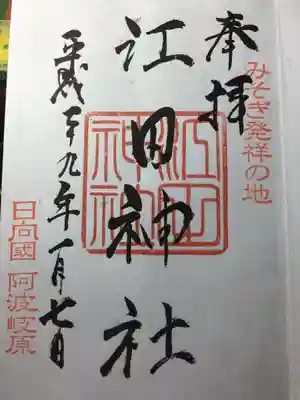 奉拝
みそぎ発祥の地
江田神社
江田神社
平成二十九年一月七日
日向國 阿波岐原